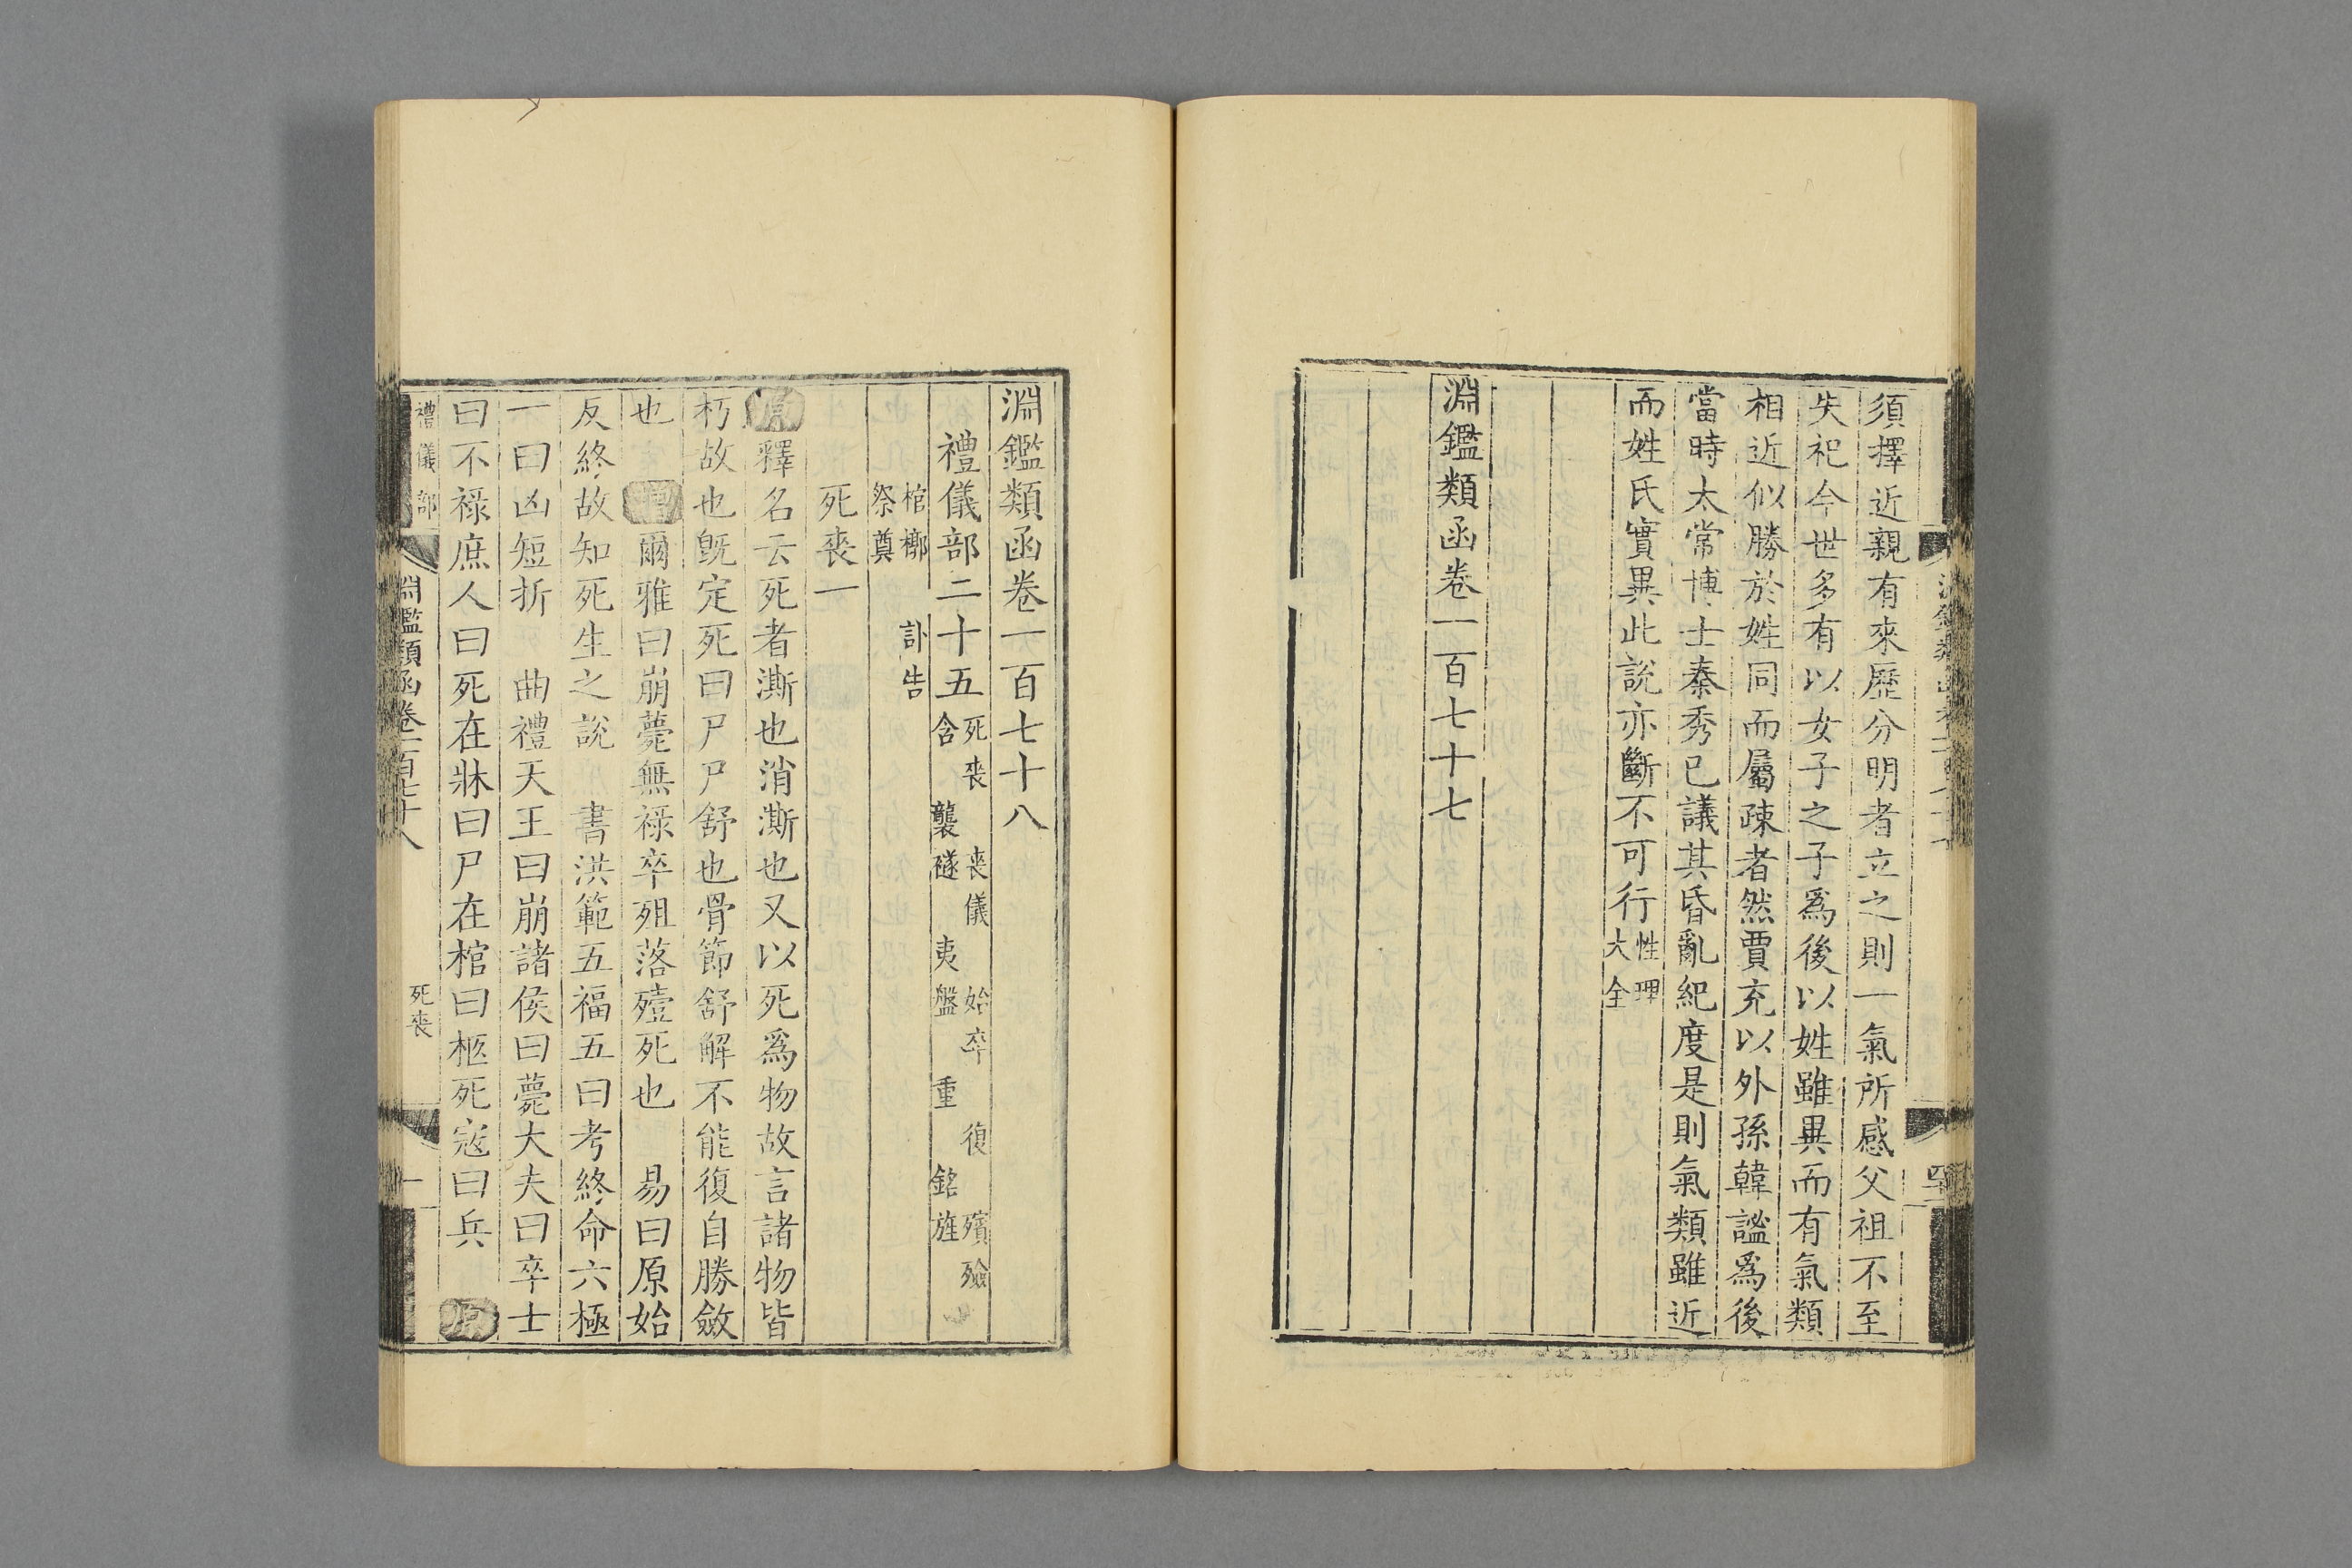 須擇近親有來歷分明者立之則一氣所感父祖不至
失祀今世多有以女子之子爲後以姓雖異而有氣類
相近似勝於姓同而屬疎者然賈充以外孫韓謐爲後
當時太常博士秦秀已議其昏亂紀度是則氣類雖近
而姓氏實異此說亦斷不可行性理大全
淵鑑類函卷一百七十七
淵鑑類函卷一百七十八
禮儀部二十五死喪 喪儀 始卒 復 殯殮
含 襲襚 夷盤 重 銘旌
棺槨 訃告
祭奠
死喪一
原釋名云死者澌也消澌也又以死爲物故言諸物皆
朽故也旣定死曰尸尸舒也骨節舒解不能復自勝斂
也 增爾雅曰崩薨無祿卒殂落殪死也 易曰原始
反終故知死生之說 書洪範五福五曰考終命六極
一曰凶短折 曲禮天王曰崩諸侯曰薨大夫曰卒士
曰不祿庶人曰死在牀曰尸在棺曰柩死寇曰兵 原
禮儀部
淵鑑類函卷一百七十八
死喪
一